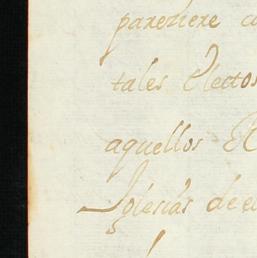 pareziere a
tales Electos
aquellos
Iglesias de